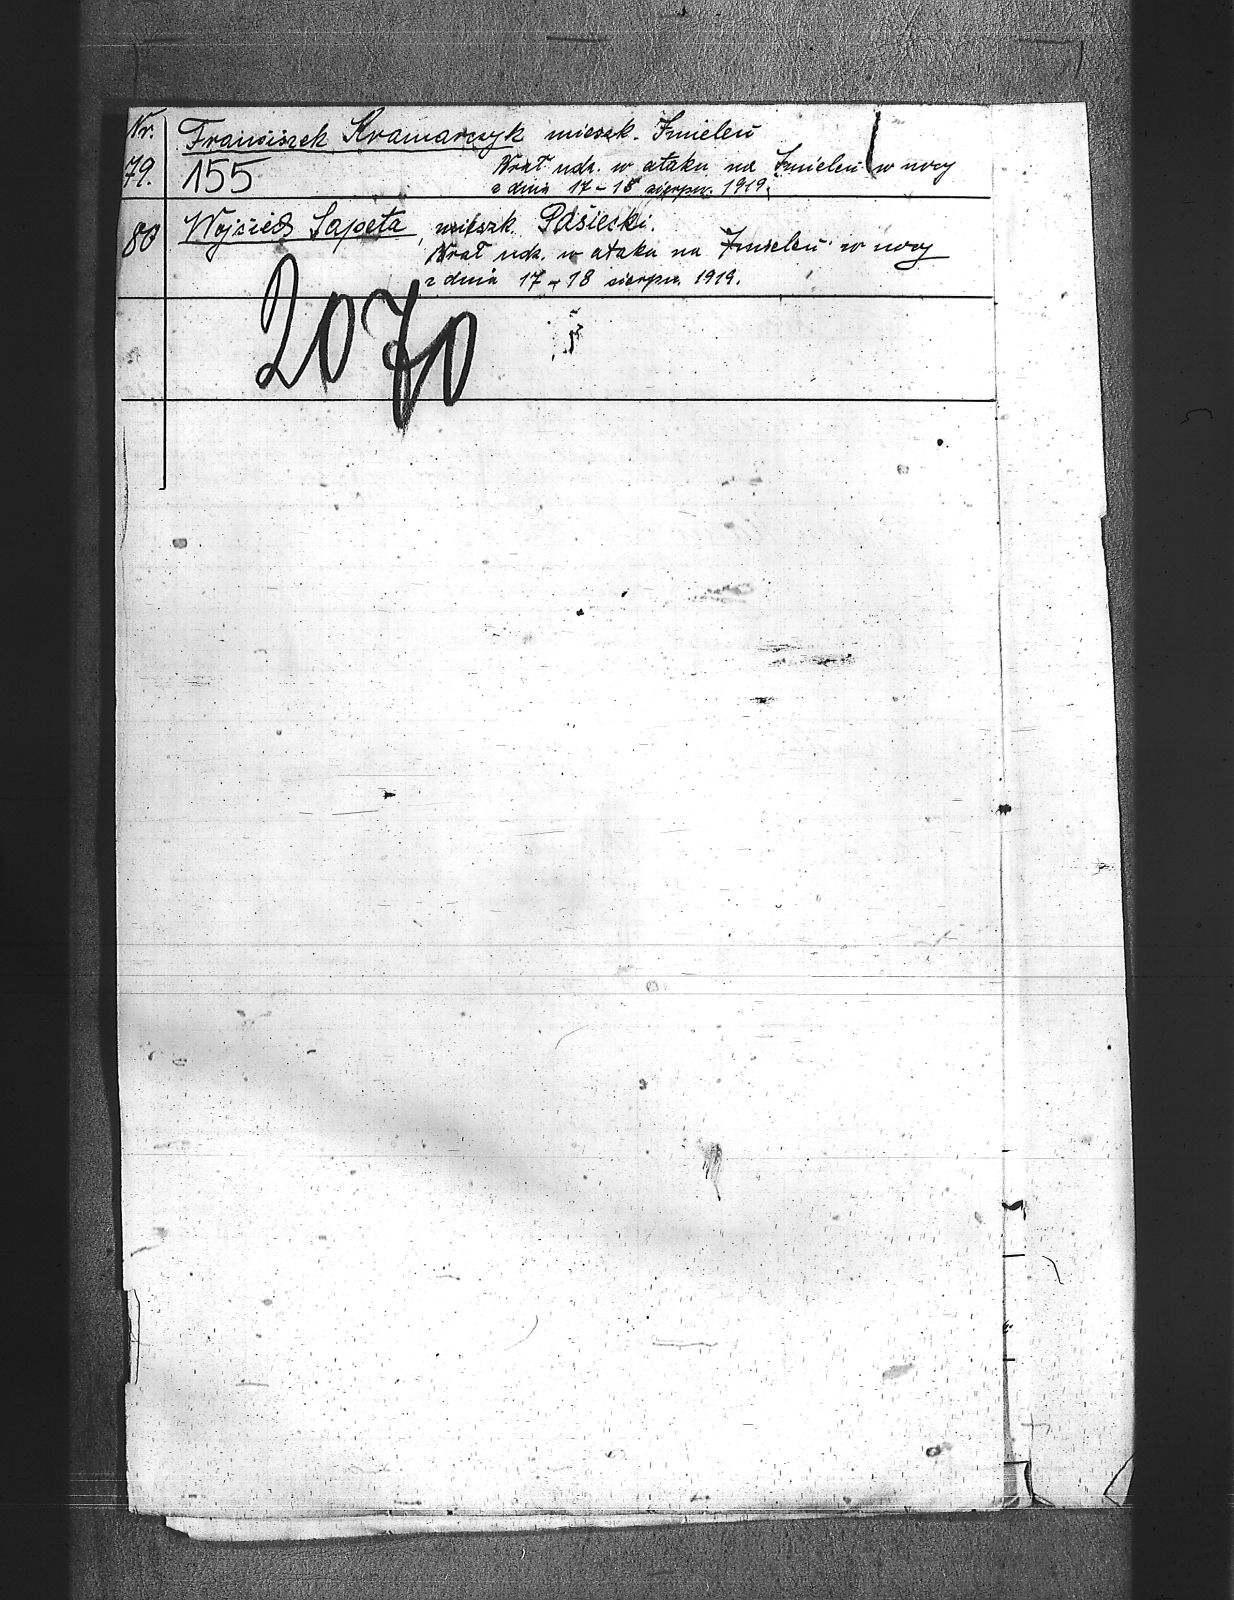 Nr.
79. Franciszek Kramarczyk mieszk. Imieleń
155 Brał udz. w ataku na Imieleń w nocy
z dnia 17-18 sierpn. 1919.
80 Wojciech Sapeta, mieszk.
Brał udz. w ataku na Imieleń w nocy
z dnia 17-18 sierpn. 1919.
2070